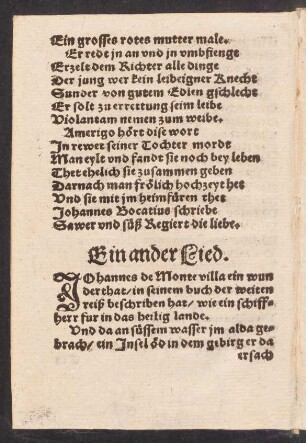 Ein grosses rotes mutter male.
Er rede jn an vnd jn vmbfienge
Erzelt dem Richter alle dinge
Der jung wer kein leibeigner Knecht
Sunder von gutem Edlen gschlecht
Er solt zu errettung seim leibe
Violantam nemen zum weibe.
Amerigo hört dise wort
In rewet seiner Tochter mordt
Man eylt vnd fandt sie noch bey leben
Thet ehelich sie zusammen geben
Darnach man frölich hochzeyt het
Vnd sie mit jm heimfüren thet
Johannes Bocatius schriebe
Sawer vnd süß Regiert die liebe.
Ein ander Lied.
JOhannes de Monte villa ein wun
der that/ in seinem buch der weiten
reiß beschriben hat/ wie ein schiff-
herr fur in das heilig lande.
Vnd da an süssem wasser jm alda ge-
brach/ ein Insel öd in dem gebirg er da
ersach